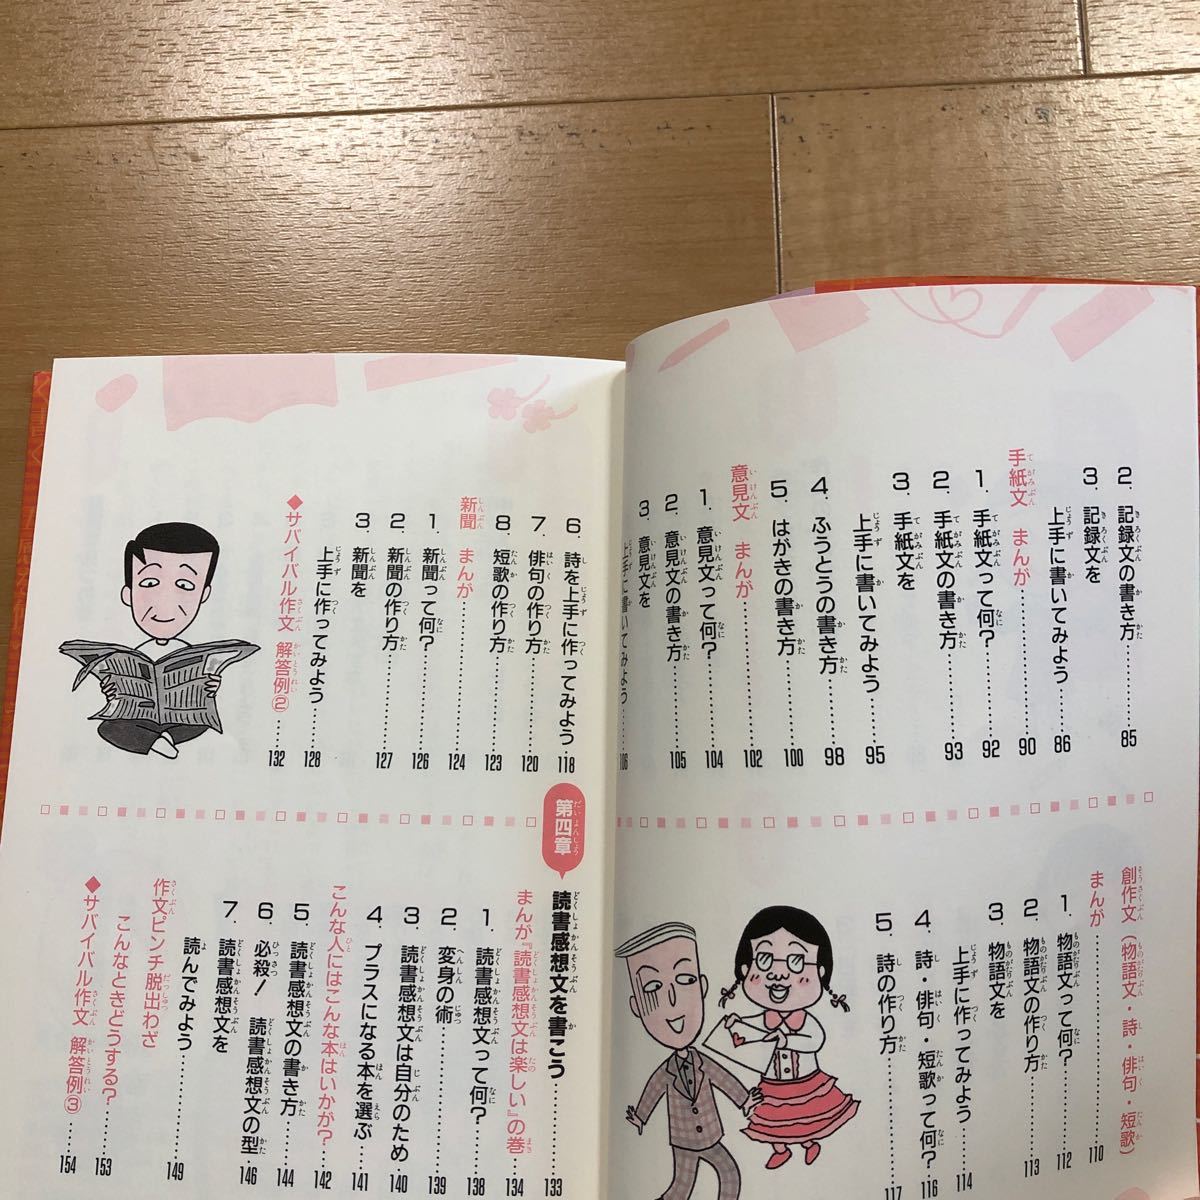 2. 記録文の書き方……85
3. 記録文を
上手に書いてみよう……86
手紙文 まんが……90
1. 手紙文って何?……92
2. 手紙文の書き方……93
3. 手紙文を
上手に書いてみよう……95
4. ふうとうの書き方……98
5. はがきの書き方……100
意見文 まんが……102
1. 意見文って何?……104
2. 意見文の書き方……105
3. 意見文を
上手に書いてみよう……106
創作文(物語文・詩・俳句・短歌)
まんが……110
1. 物語文って何?……112
2. 物語文の作り方……113
3. 物語文を
上手に作ってみよう……114
4. 詩・俳句・短歌って何?……116
5. 詩の作り方……117
6. 詩を上手に作ってみよう……118
7. 俳句の作り方……120
8. 短歌の作り方……123
新聞 まんが……124
1. 新聞って何?……126
2. 新聞の作り方……127
3. 新聞を
上手に作ってみよう……128
◆サバイバル作文 解答例②……132
第四章 読書感想文を書こう……133
まんが『読書感想文は楽しい』の巻……134
1. 読書感想文って何?……138
2. 変身の術……139
3. 読書感想文は自分のため……140
4. プラスになる本を選ぶ……141
こんな人にはこんな本はいかが?……142
5. 読書感想文の書き方……144
6. 必殺! 読書感想文の型……146
7. 読書感想文を
読んでみよう……149
作文ピンチ脱出わざ
こんなときどうする?……153
◆サバイバル作文 解答例③……154